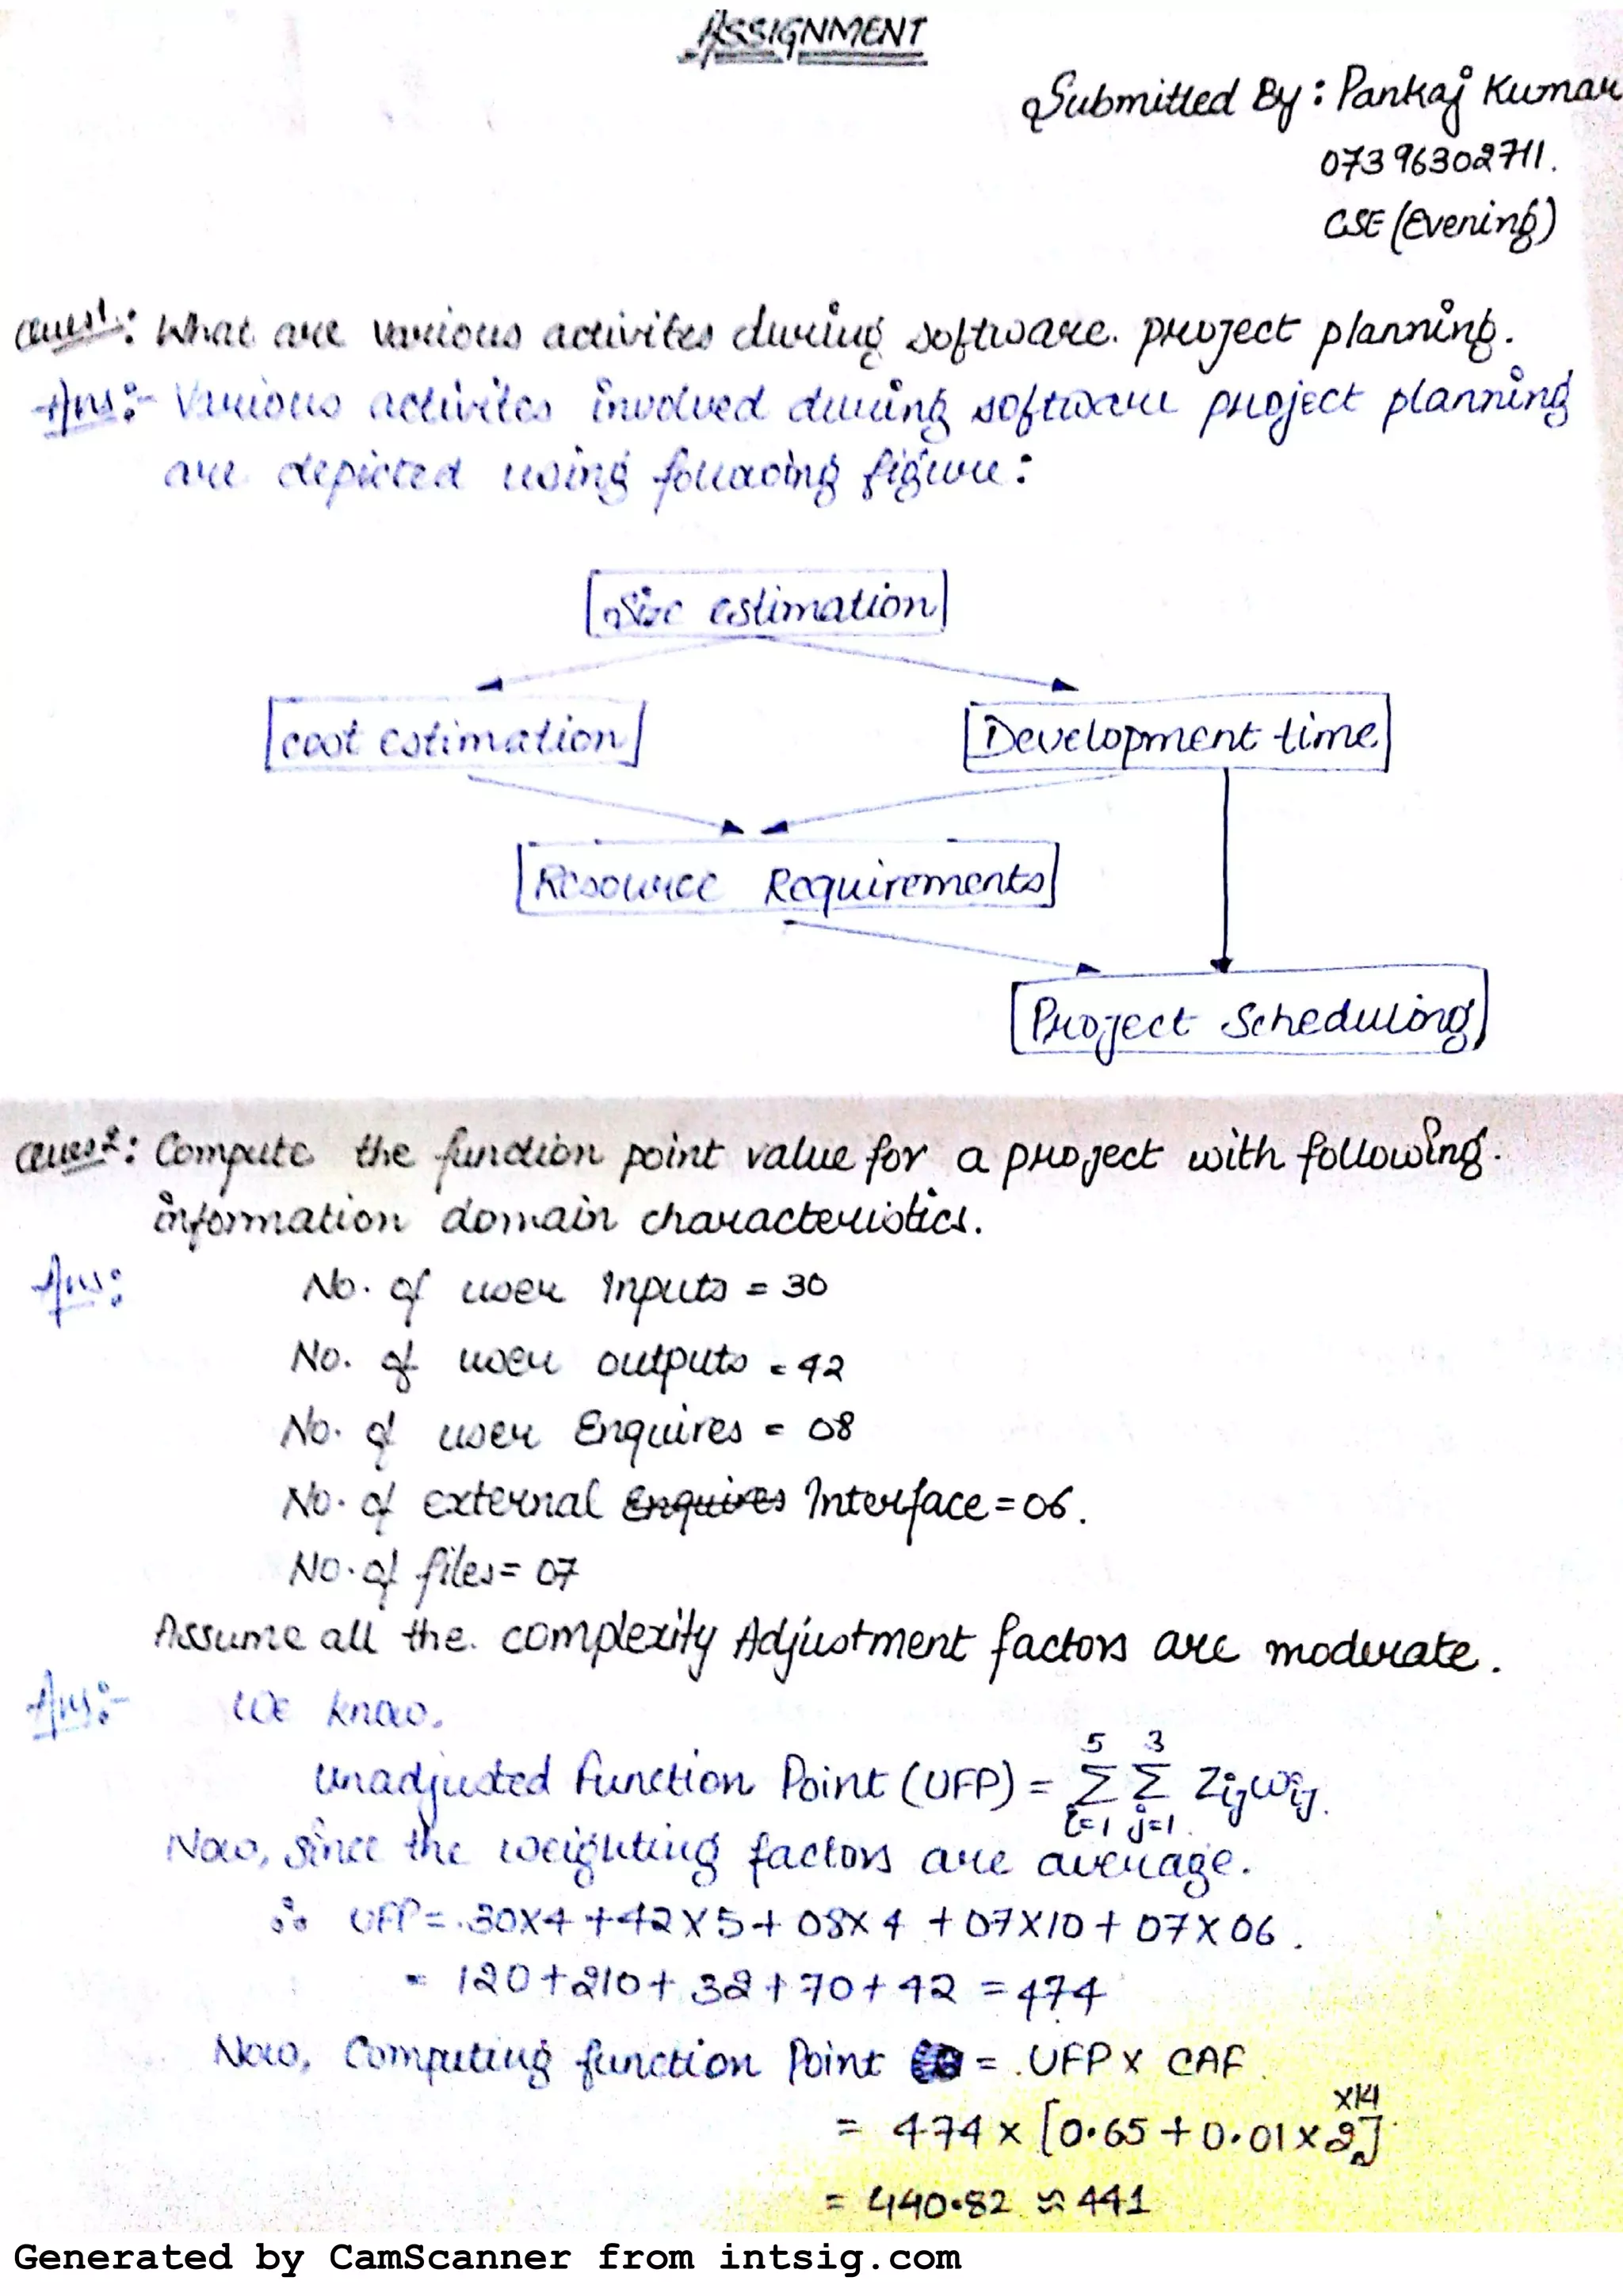 ASSIGNMENT
Submitted By : Pankaj Kumar
07396302711.
CSE (Evening)
Ques1: What are various activites during software. project planning.
Ans:- Various activites involved during software project planning
are depicted using following figure :
Size estimation
cost estimation
Development time
Resource Requirements
Project Scheduling
Ques2: Compute the function point value for a project with following.
information domain characteristics.
Ans:
No. of user Inputs = 30
No. of user outputs = 42
No. of user Enquires = 08
No. of external Enquires Interface = 06.
No. of files = 07
Assume all the complexity Adjustment factors are moderate.
Ans:- We know.
Unadjusted Function Point (UFP) = 5∑i=1 3∑j=1 Zijwij.
Now, since the weighting factors are average.
∴ UFP = 30x4 + 42x5 + 08x4 + 07x10 + 07x06.
= 120+210+32+70+42 = 474
Now, Computing function Point = UFP x CAF.
= 474 x [0.65 + 0.01 x 3] x14
= 440.82 ≈ 441
Generated by CamScanner from intsig.com